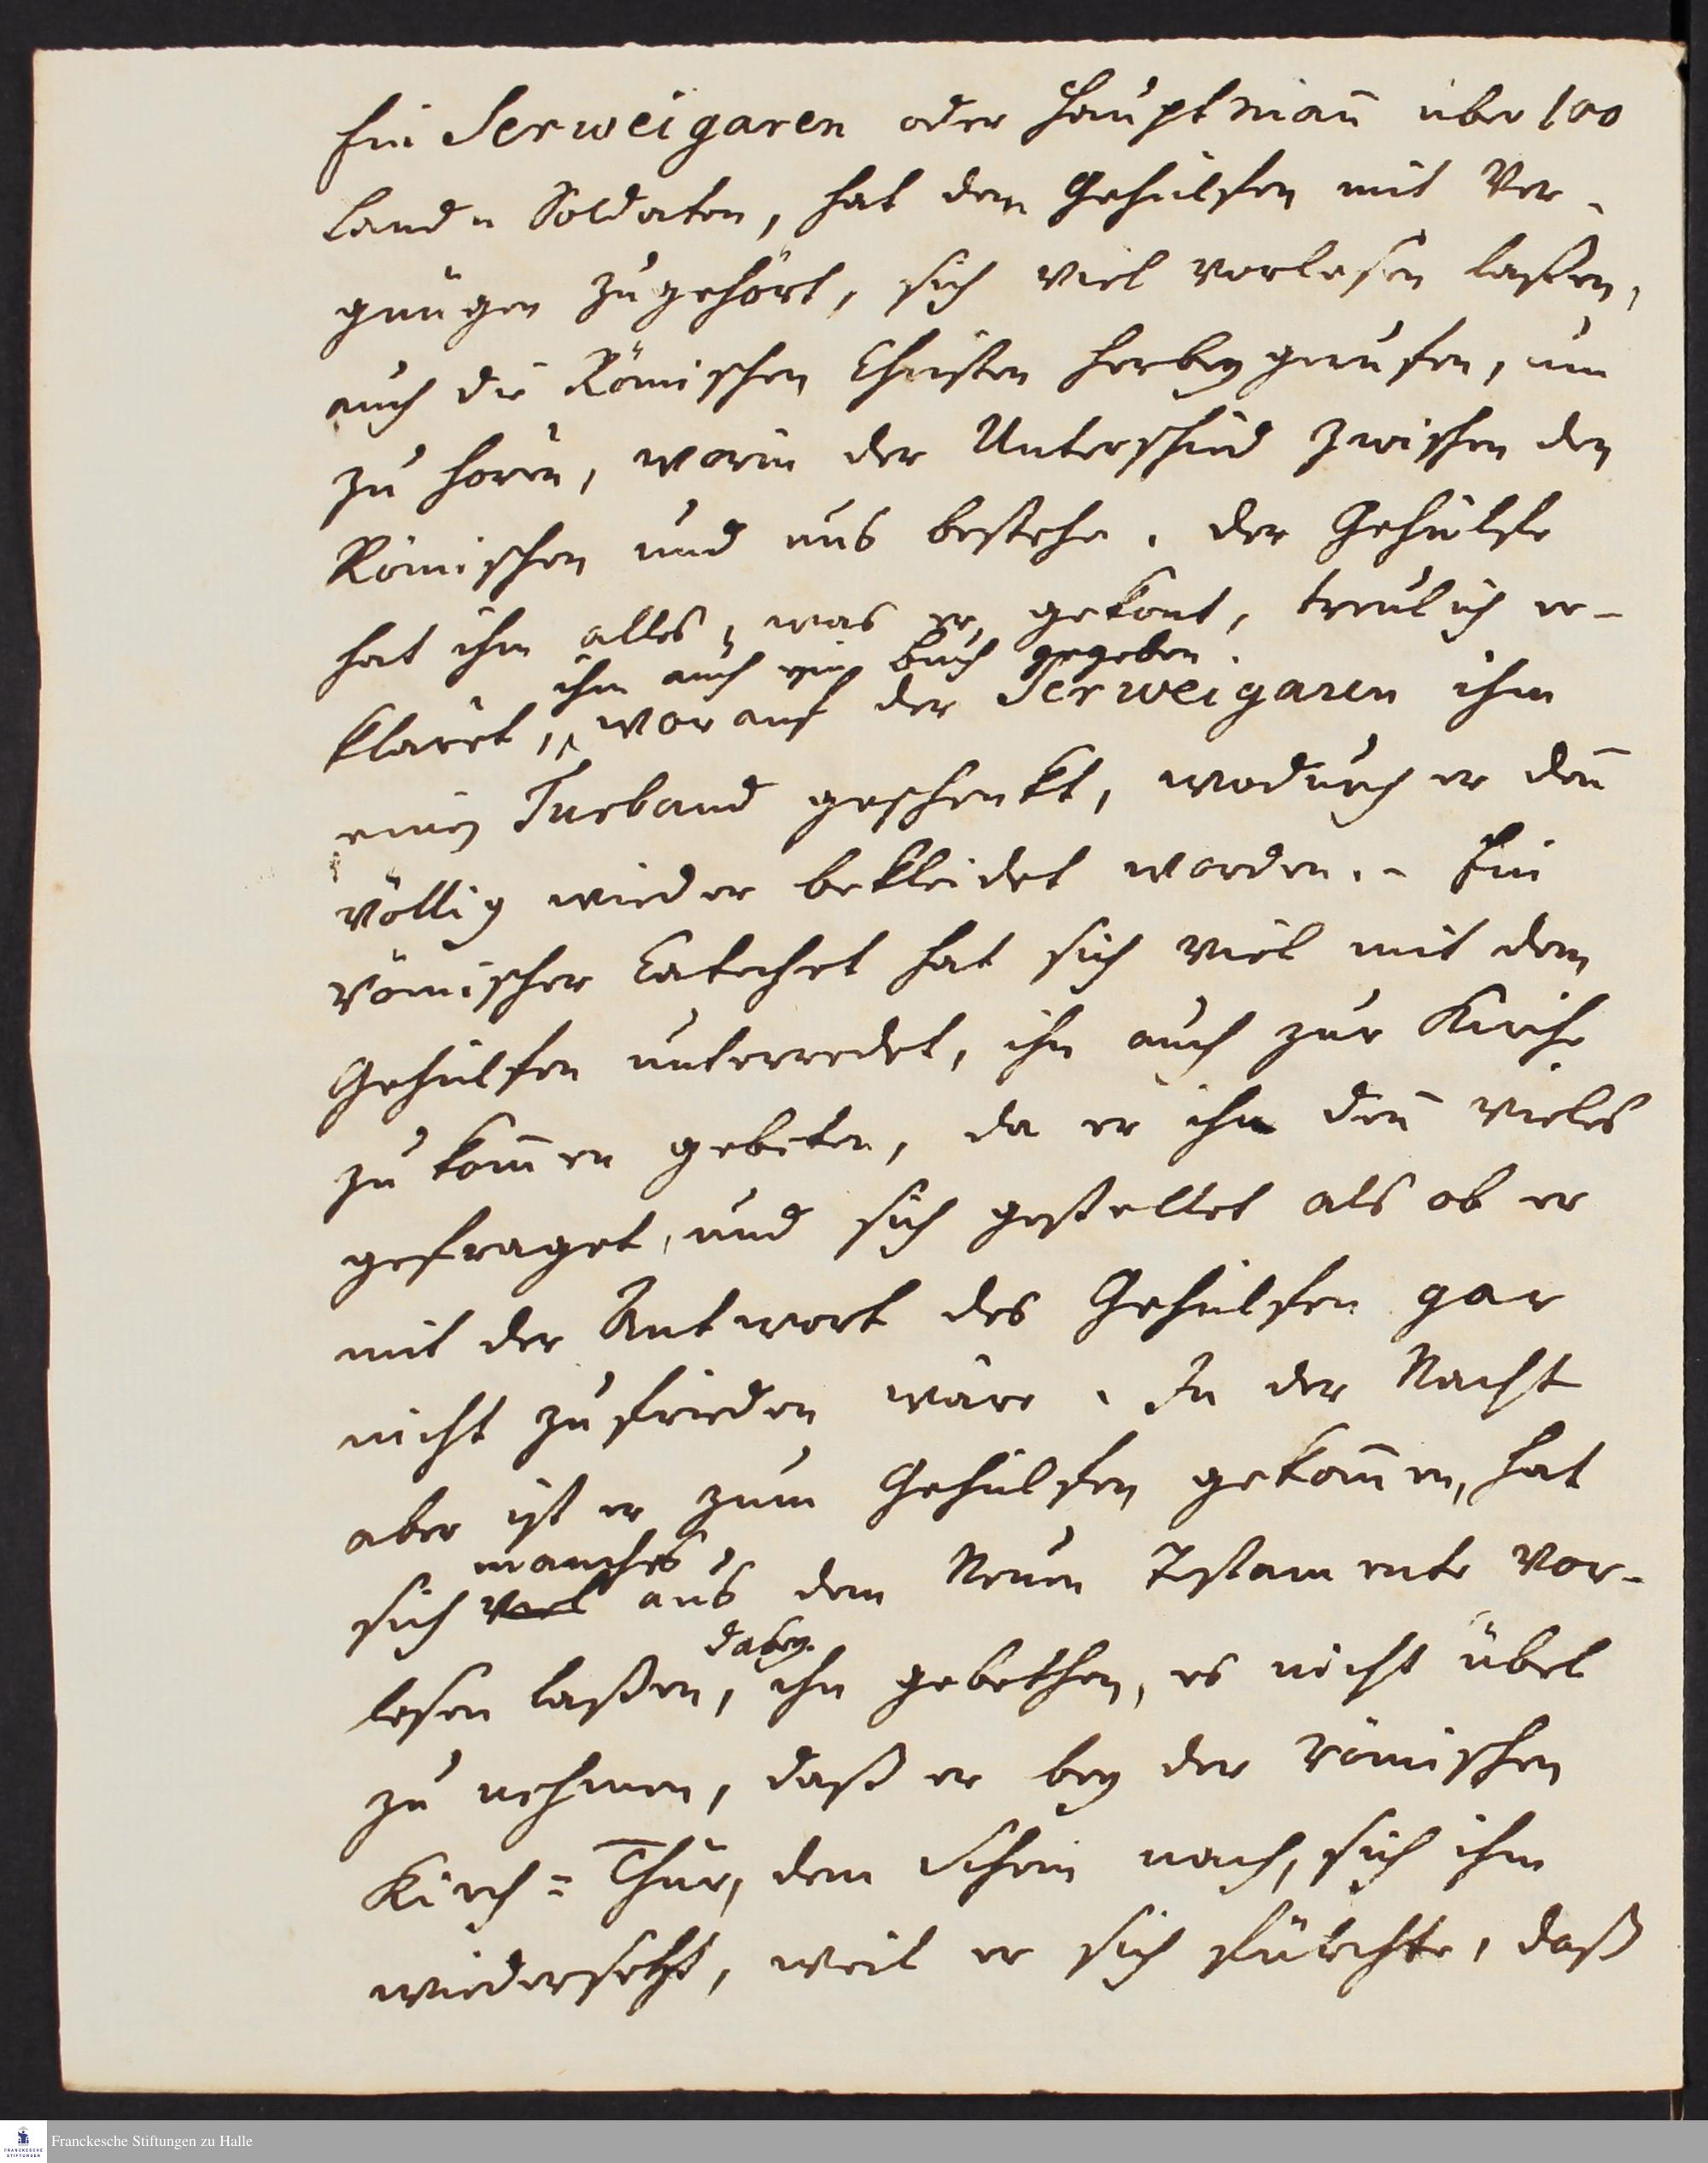 Ein Serweigaren oder Hauptman̄ über 100
Land- Soldaten, hat dem Gehülfen mit Ver-
gnügen zugehört, sich viel vorlesen laßen,
auch die Römischen Christen herbey gerufen, um
zu hören, worin der Unterschied zwischen den
Römischen und uns bestehe. Der Gehülfe
hat ihm alles, was er gekont, treulich er-
ihm auch ein Buch gegeben.
klärt, worauf der Serweigaren ihm
einen Turband geschenkt, wodurch er den̄
völlig wieder bekleidet worden. - Ein
römischer Catechet hat sich viel mit dem
Gehülfen unterredet, ihn auch zur Kirche
zu kom̄en gebeten, da er ihn den̄ vieles
gefraget, und sich gestellet als ob er
mit der Antwort des Gehülfen gar
nicht zufrieden wäre. In der Nacht
aber ist er zum Gehülfen gekom̄en, hat
manches
sich viel aus dem Neuen Testamente vor-
dabey
lesen laßen, ihn gebethen, es nicht übel
zu nehmen, daß er bey der römischen
Kirch=Thür, dem Schein nach, sich ihm
wiedersetzt, weil er sich fürchte, daß
Franckesche Stiftungen zu Halle